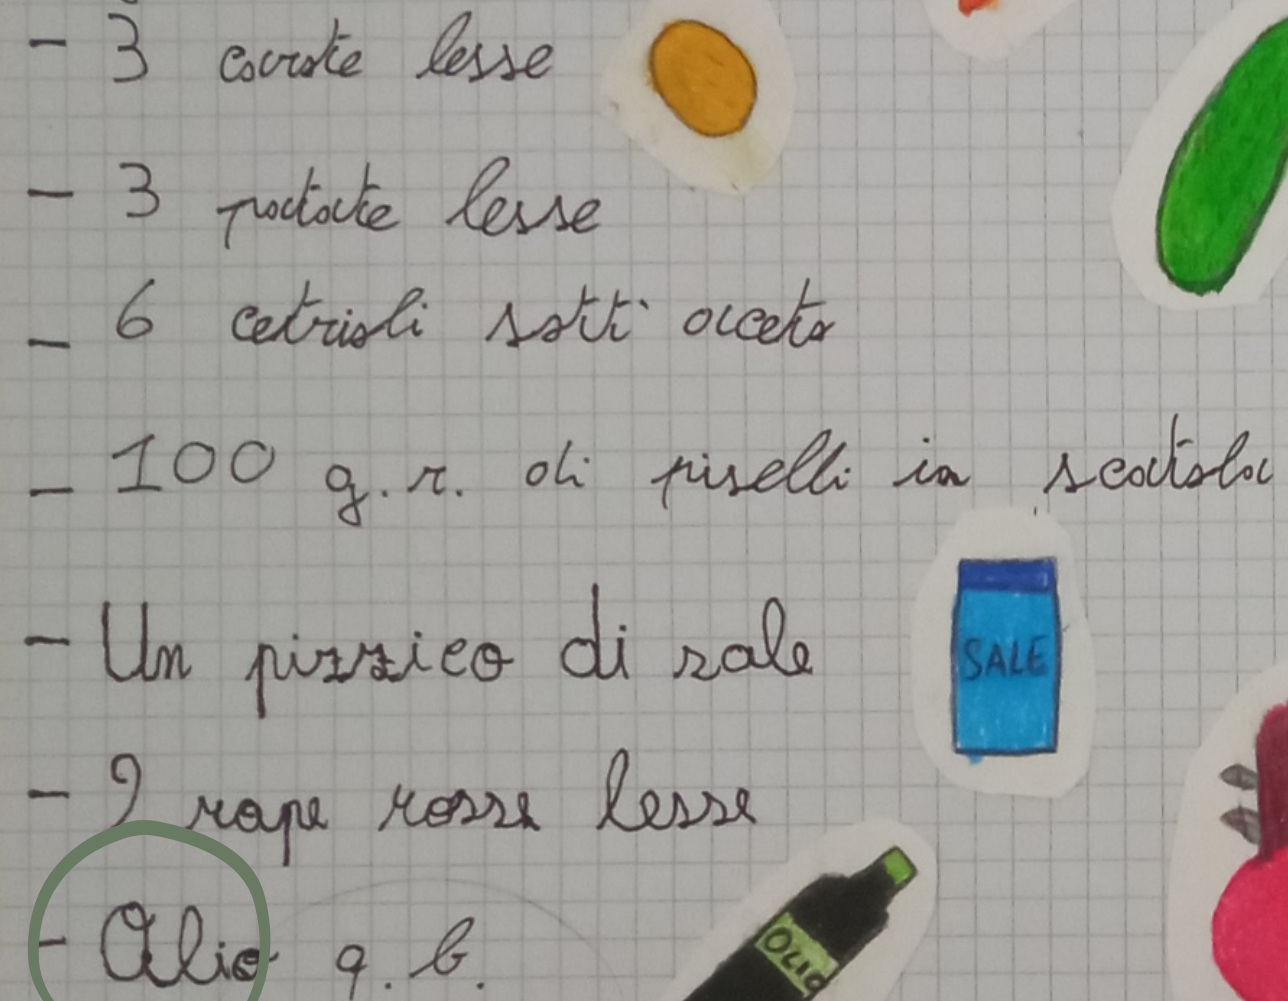 - 3 carote lesse
- 3 patate lesse
- 6 cetrioli sotti aceto
- 100 g.r. di piselli in scatola
- Un pizzico di sale
SALE
- 2 rape rosse lesse
- Olio q.b.
OLIO